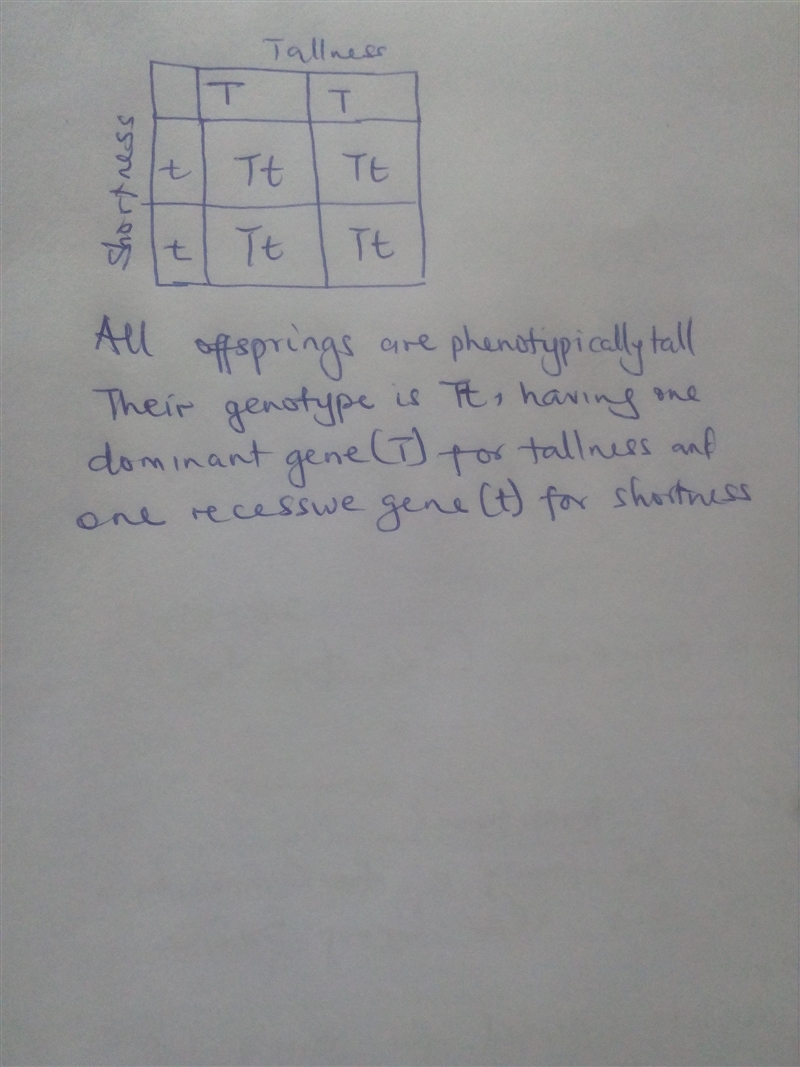 Tallness
Shortness
T T
t Tt Tt
t Tt Tt
All offsprings are phenotypically tall
Their genotype is Tt, having one
dominant gene (T) for tallness and
one recessive gene (t) for shortness